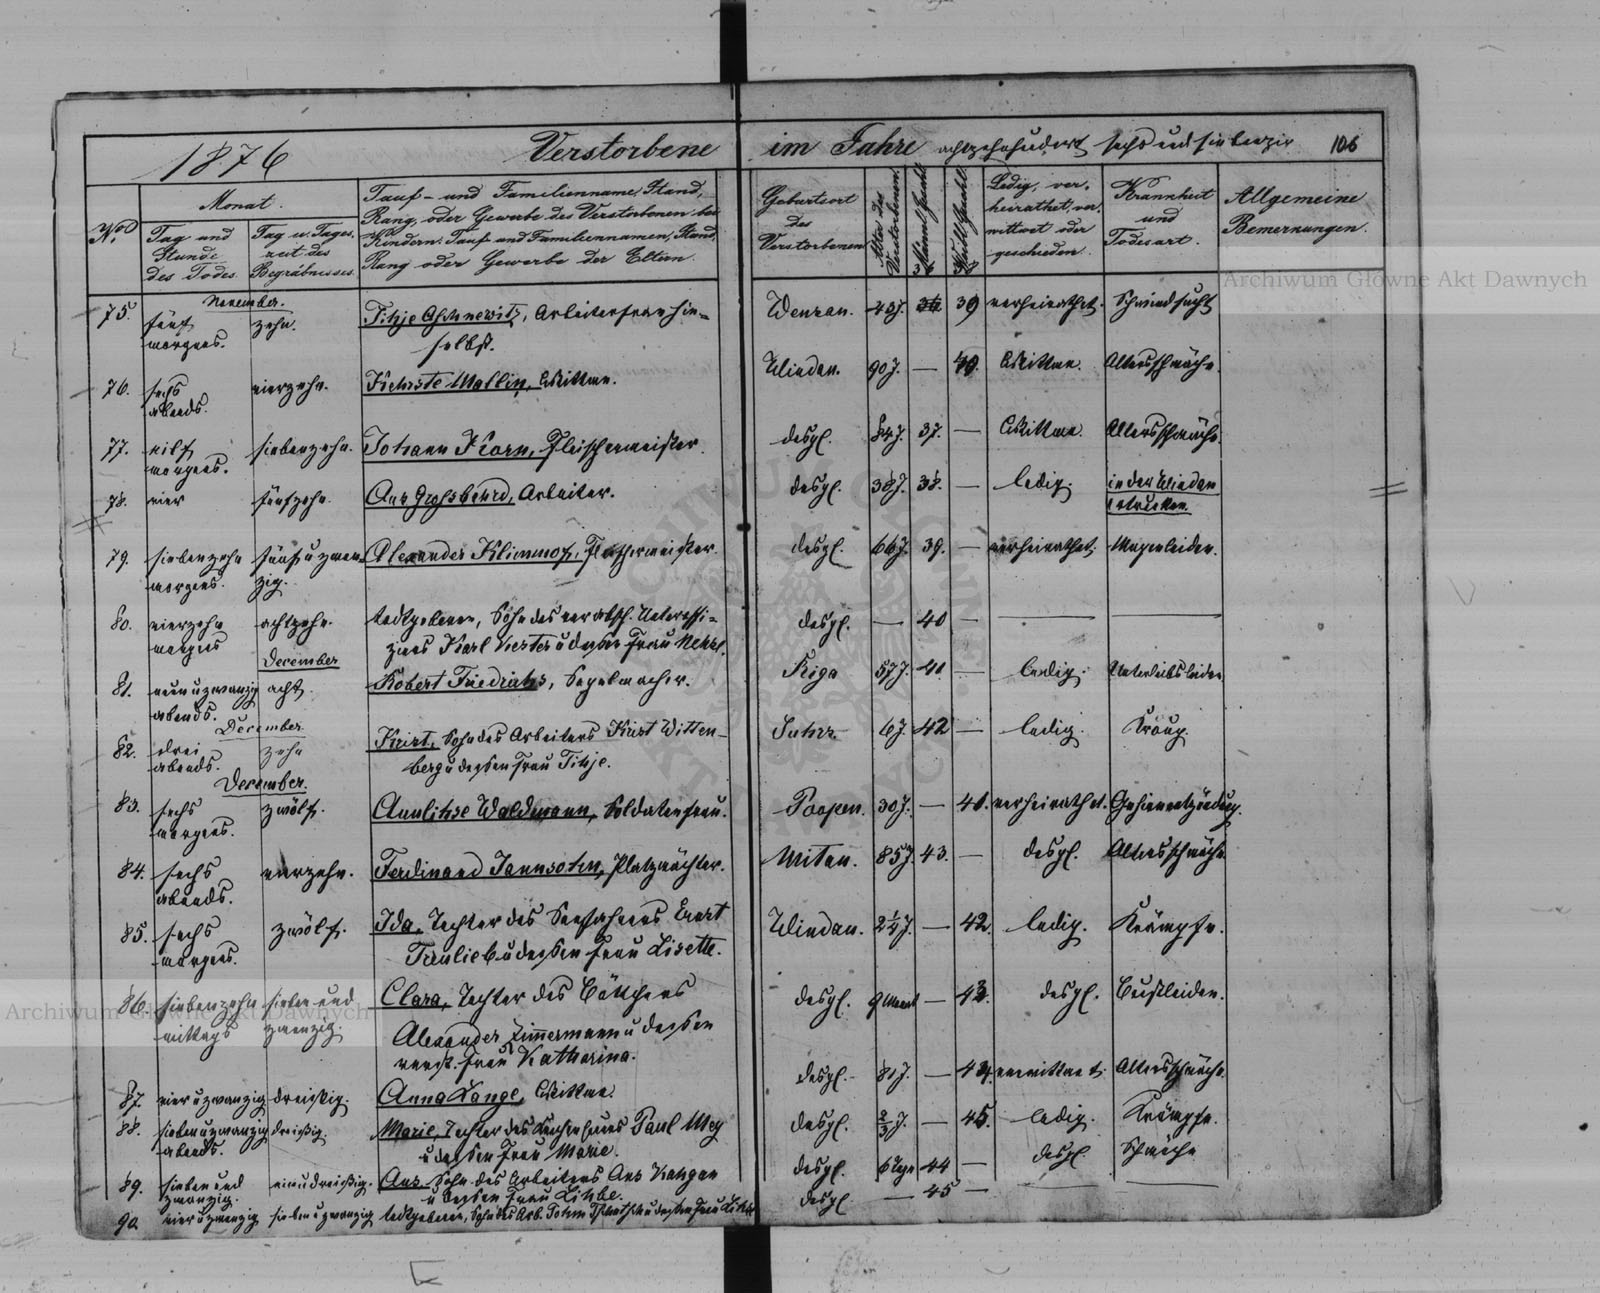 1876 Verstorbene im Jahre achtzehnhundert sechs und siebenzig 106
No.
Monat.
Tag und Stunde des Todes.
Tag u. Tages-zeit des Begräbnisses.
Tauf- und Familienname, Stand,
Rang, oder Gewerbe des Verstorbenen bei
Kindern: Tauf- und Familiennamen, Stand,
Rang oder Gewerbe der Eltern.
Geburtsort des Verstorbenen
Alter des Verstorbenen.
Männl. Geschl.
Weibl. Geschl.
Ledig, ver-
heirathet, ver-
wittwet oder
geschieden.
Krankheit und Todesart.
Allgemeine Bemerkungen.
Archiwum Główne Akt Dawnych
November.
75. fünf zehn. Arbeiterfrau hie- Wenzau. 39 verheirathet. Schwindsucht
morgens. selbst.
76. sechs vierzehn. Wittwe. Windau. 90 J. — 40. Wittwe. Altersschwäche.
abends.
77. elf siebenzehn. Johann Korn, Fleischermeister. desgl. 84 J. 37. — Wittwe. Altersschwäche.
morgens.
78. vier fünfzehn. Ans Grossberd, Arbeiter. desgl. 38 J. 38. — ledig. in der Windau
ertrunken.
79. siebenzehn fünf u zwan- Alexander Klimmof, Fleischermeister. desgl. 66 J. 39. — verheirathet. Magenleiden.
morgens. zig.
80. vierzehn achtzehn. todtgeboren, Sohn des verabsch. Unteroffi- desgl. — 40 — — —
morgens ziers Karl u dessen Frau
December
81. neun u zwanzig acht. Robert Friedrichs, Segelmacher. Riga 57 J. 41 — ledig. Unterleibsleiden
abends.
December
82. drei zehn Krist, Sohn des Arbeiters Krist Witten- 6 J. 42 — ledig. Kroup.
abends. berg u dessen Frau Tihje.
December.
83. sechs zwölf. Annlihse Waldmann, Soldatenfrau. Poopen. 30 J. — 41. verheirathet. Gehirnentzündung.
morgens.
84. sechs vierzehn. Ferdinand Jannsohn, Platzwächter. Mitau. 85 J. 43. — desgl. Altersschwäche
abends.
85. sechs zwölf. Ida, Tochter des Seefahrers Ewert Windau. 2¼ J. — 42. ledig. Krämpfe.
morgens. u dessen Frau Lisette.
86. siebenzehn sieben und Clara, Tochter des Böttchers desgl. 9 Monat — 43. desgl. Brustleiden.
mittags zwanzig. Alexander Zimmermann u dessen
verst. Frau Katharina.
Archiwum Główne Akt Dawnych
87. vier u zwanzig dreissig. Anna Lange, Wittwe. desgl. 81 J. — 44. verwittwet. Altersschwäche
88. sieben u zwanzig dreissig Marie, Tochter des Paul Mey desgl. ⅔ J. — 45. ledig. Krämpfe.
abends. u dessen Frau Marie.
89. sieben und ein u dreissig. Ans Sohn des Arbeiters Ans desgl. 6 Tage 44 — desgl Schwäche
zwanzig. u dessen Frau Lihbe.
90 vier u zwanzig sieben u zwanzig todtgeboren, Sohn des Arb. u dessen Frau desgl — 45 — — —
ARCHIWUM GŁÓWNE AKT DAWNYCH